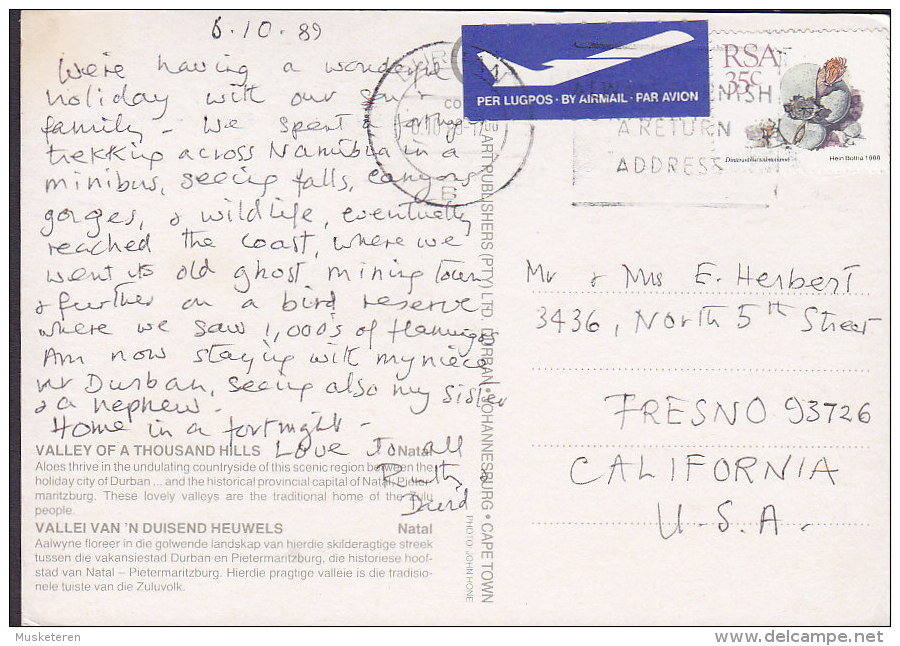 6.10.89
We're having a wonderful
holiday with our son &
family - We spent a fortnight
trekking across Namibia in a
minibus, seeing falls, canyons
gorges, & wildlife, eventually
reached the coast, where we
went to old ghost mining town
& further on a bird reserve
where we saw 1,000's of flamingos
Am now staying with my niece
nr Durban, seeing also my sister
& a nephew.
Home in a fortnight -
Love to all
Ruth &
David
VALLEY OF A THOUSAND HILLS Natal
Aloes thrive in the undulating countryside of this scenic region between the
holiday city of Durban ... and the historical provincial capital of Natal, Pieter-
maritzburg. These lovely valleys are the traditional home of the Zulu
people.
VALLEI VAN 'N DUISEND HEUWELS Natal
Aalwyne floreer in die golwende landskap van hierdie skilderagtige streek
tussen die vakansiestad Durban en Pietermaritzburg, die historiese hoof-
stad van Natal – Pietermaritzburg. Hierdie pragtige valleie is die tradisio-
nele tuiste van die Zuluvolk.
ART PUBLISHERS (PTY) LTD. DURBAN • JOHANNESBURG • CAPE TOWN
PHOTO: JOHN HONE
PER LUGPOS · BY AIRMAIL · PAR AVION
RSA
35c
Hein Botha 1988
A RETURN
ADDRESS
Mr & Mrs E. Herbert
3436, North 5th Street
FRESNO 93726
CALIFORNIA
U.S.A.
Musketeren
delcampe.net